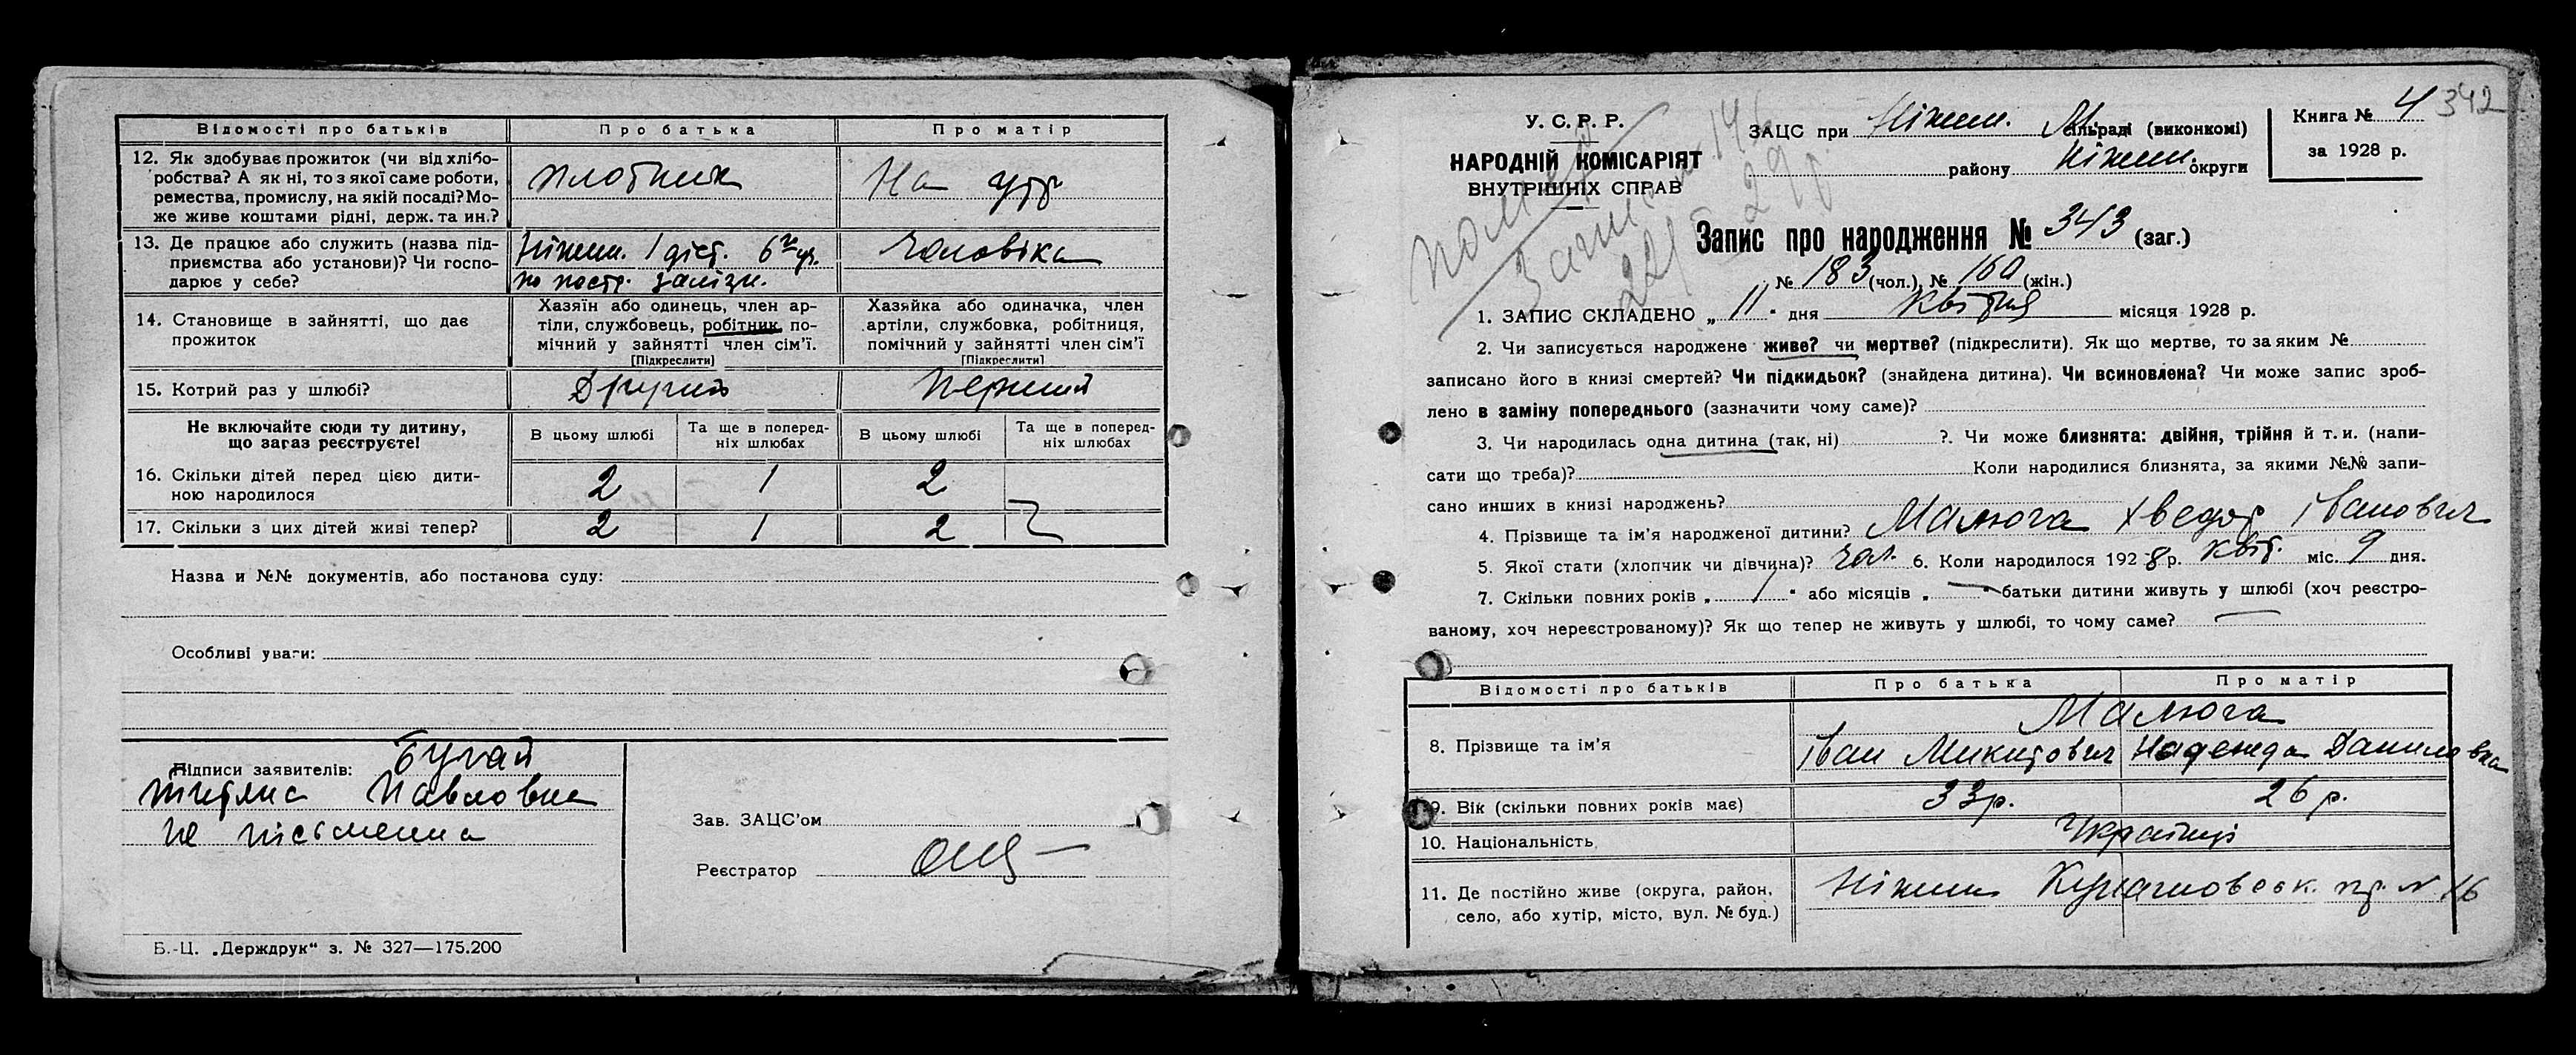 Відомості про батьків Про батька Про матір
12. Як здобуває прожиток (чи від хлібо-
робства? А як ні, то з якої саме роботи,
ремества, промислу, на якій посаді? Мо-
же живе коштами рідні, держ. та ин.?
плотник На утр
13. Де працює або служить (назва під-
приємства або установи)? Чи госпо-
дарює у себе?
Ніжин. 1 діст. 6
по постр. залізн.
чоловіка
14. Становище в зайнятті, що дає
прожиток
Хазяїн або одинець, член ар-
тіли, службовець, робітник, по-
мічний у зайнятті член сім'ї.
[Підкреслити]
Хазяйка або одиначка, член
артіли, службовка, робітниця,
помічний у зайнятті член сім'ї
[Підкреслити]
15. Котрий раз у шлюбі? Другий Перший
Не включайте сюди ту дитину,
що загаз реєструєте!
В цьому шлюбі
Та ще в поперед-
ніх шлюбах
В цьому шлюбі
Та ще в поперед-
ніх шлюбах
16. Скільки дітей перед цією дити-
ною народилося
2 1 2
17. Скільки з цих дітей живі тепер? 2 1 2
Назва и №№ документів, або постанова суду:
Особливі уваги:
Підписи заявителів: Бугай
Павловна
не письменна
Зав. ЗАЦС'ом
Реєстратор
Б.-Ц. „Держдрук“ з. № 327—175.200
У. С. Р. Р.
НАРОДНІЙ КОМІСАРІЯТ
ВНУТРІШНІХ СПРАВ
ЗАЦС при Ніжин. М. сільраді (виконкомі)
району Ніжин. округи
Книга № 4
за 1928 р.
342
Запис про народження № 343 (заг.)
№ 183 (чол.), № 160 (жін.)
1. ЗАПИС СКЛАДЕНО „ 11 “ дня Квітня місяця 1928 р.
2. Чи записується народжене живе? чи мертве? (підкреслити). Як що мертве, то за яким №
записано його в книзі смертей? Чи підкидьок? (знайдена дитина). Чи всиновлена? Чи може запис зроб-
лено в заміну попереднього (зазначити чому саме)?
3. Чи народилась одна дитина (так, ні) ?. Чи може близнята: двійня, трійня й т. и. (напи-
сати що треба)? Коли народилися близнята, за якими №№ запи-
сано инших в книзі народжень?
4. Прізвище та ім'я народженої дитини? Малюга Хведор Іванович
5. Якої стати (хлопчик чи дівчина)? чол. 6. Коли народилося 1928 р. квіт. міс. 9 дня.
7. Скільки повних років „ “ або місяців „ “ батьки дитини живуть у шлюбі (хоч реєстро-
ваному, хоч нереєстрованому)? Як що тепер не живуть у шлюбі, то чому саме?
Відомості про батьків Про батька Про матір
Малюга
8. Прізвище та ім'я Іван Микитович Надежда Даниловна
9. Вік (скільки повних років має) 33 р. 26 р.
10. Національність Українці
11. Де постійно живе (округа, район,
село, або хутір, місто, вул. № буд.)
Ніжин